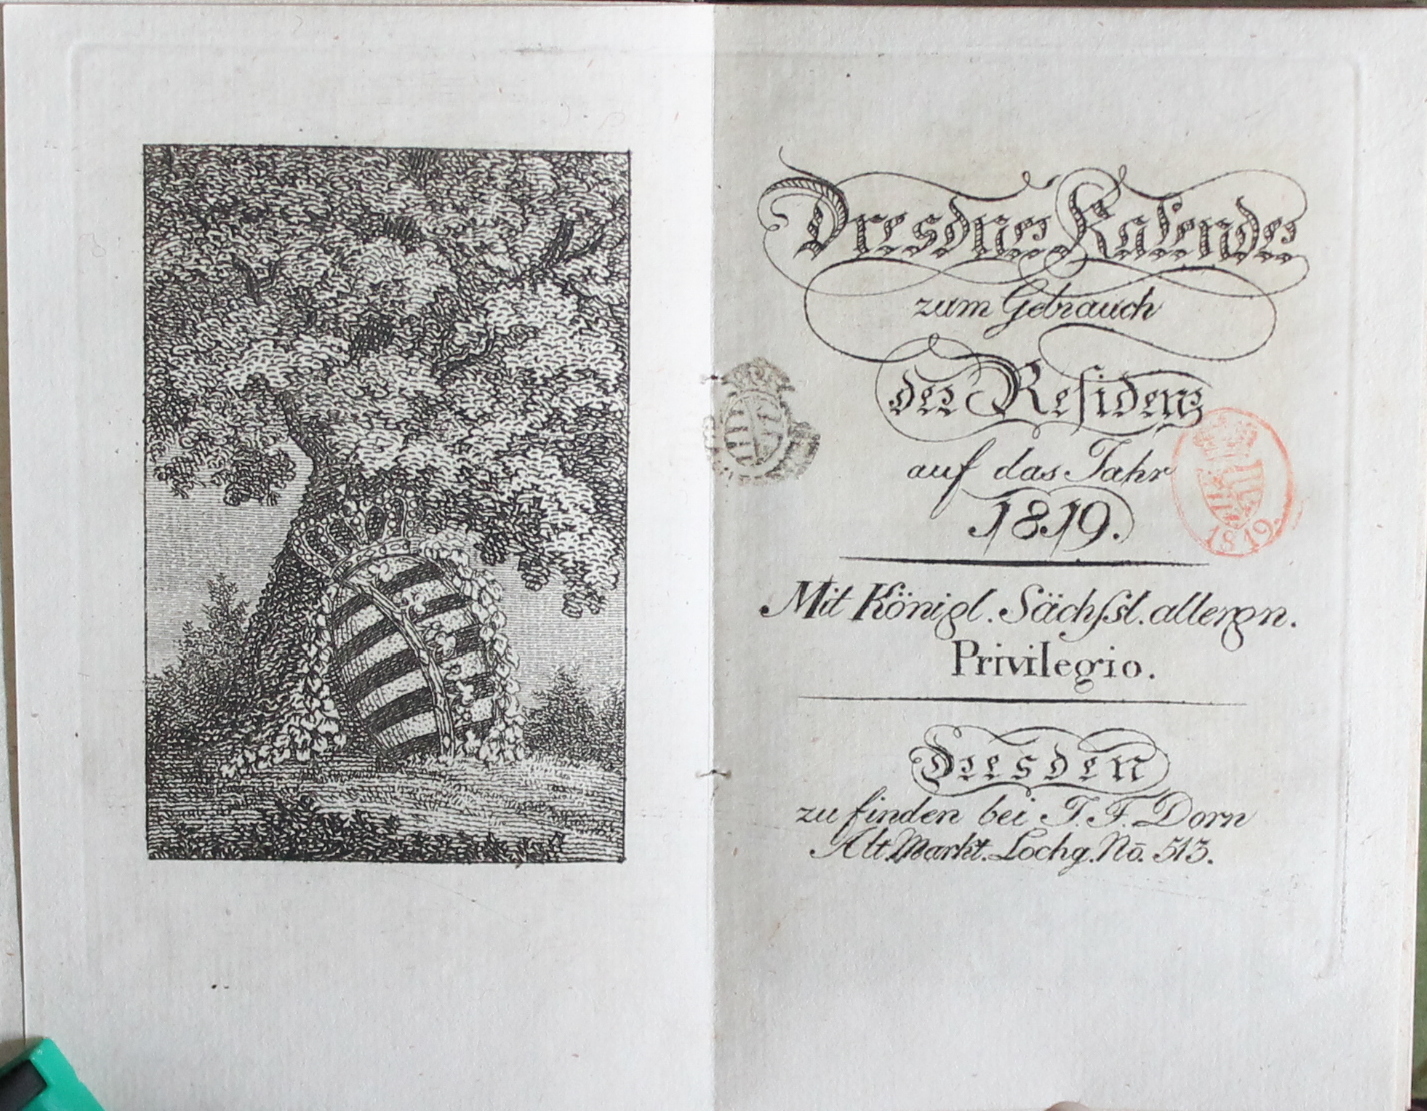 Dresdner Kalender
zum Gebrauch
der Residenz
auf das Jahr
1819.
1819.
Mit Königl. Sächsl. allergn.
Privilegio.
Dresden
zu finden bei J. F. Dorn
Alt. Markt. Lochg. No. 513.